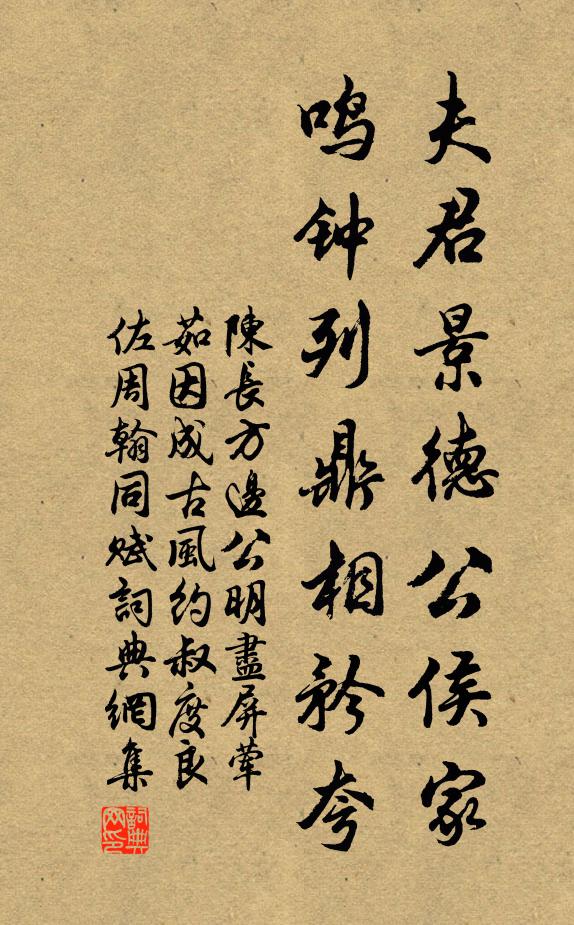 夫君景德公侯家
鸣钟列鼎相矜夸
陳長方邊公明盡屏葷
茹因成古風約叔度良
佐周翰同賦詞典網集
詞典網印